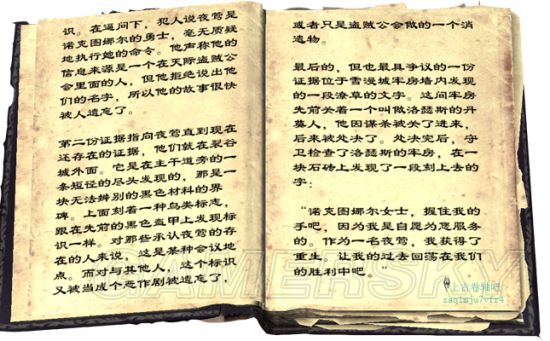 识。在逼问下，犯人说夜莺是
诺克图娜尔的勇士，毫无质疑
地执行她的命令。他声称他的
信息来源是一个在天际盗贼公
会里面的人，但他拒绝说出他
们的名字，所以他的故事很快
被人遗忘了。
第二份证据指向夜莺直到现在
还存在的证据，他们就在裂谷
城外面。它是在主干道旁的一
条短径的尽头发现的，那是一
块无法辨别的黑色材料的界
碑。上面刻着一种鸟类标志，
跟在先前的黑色盔甲上发现标
识一样。对那些承认夜莺的存
在的人来说，这是某种会议地
点。而对与其他人，这个标识
又被当成个恶作剧被遗忘了，
或者只是盗贼公会做的一个消
遣物。
最后的，但也最具争议的一份
证据位于雪漫城牢房墙内发现
的一段潦草的文字。这间牢房
先前关着一个叫做洛瑟斯的丹
莫人，他因谋杀被关了进来，
后来被处决了。处决完后，守
卫检查了洛瑟斯的牢房，在一
块石砖上发现了一段刻上去的
字：
“诺克图娜尔女士，握住我的
手吧，因为我是自愿为您服务
的。作为一名夜莺，我获得了
重生，让我的过去回荡在我们
的胜利中吧。”
GAMERSKY
@上古卷轴吧
zaq1mju7vfr4